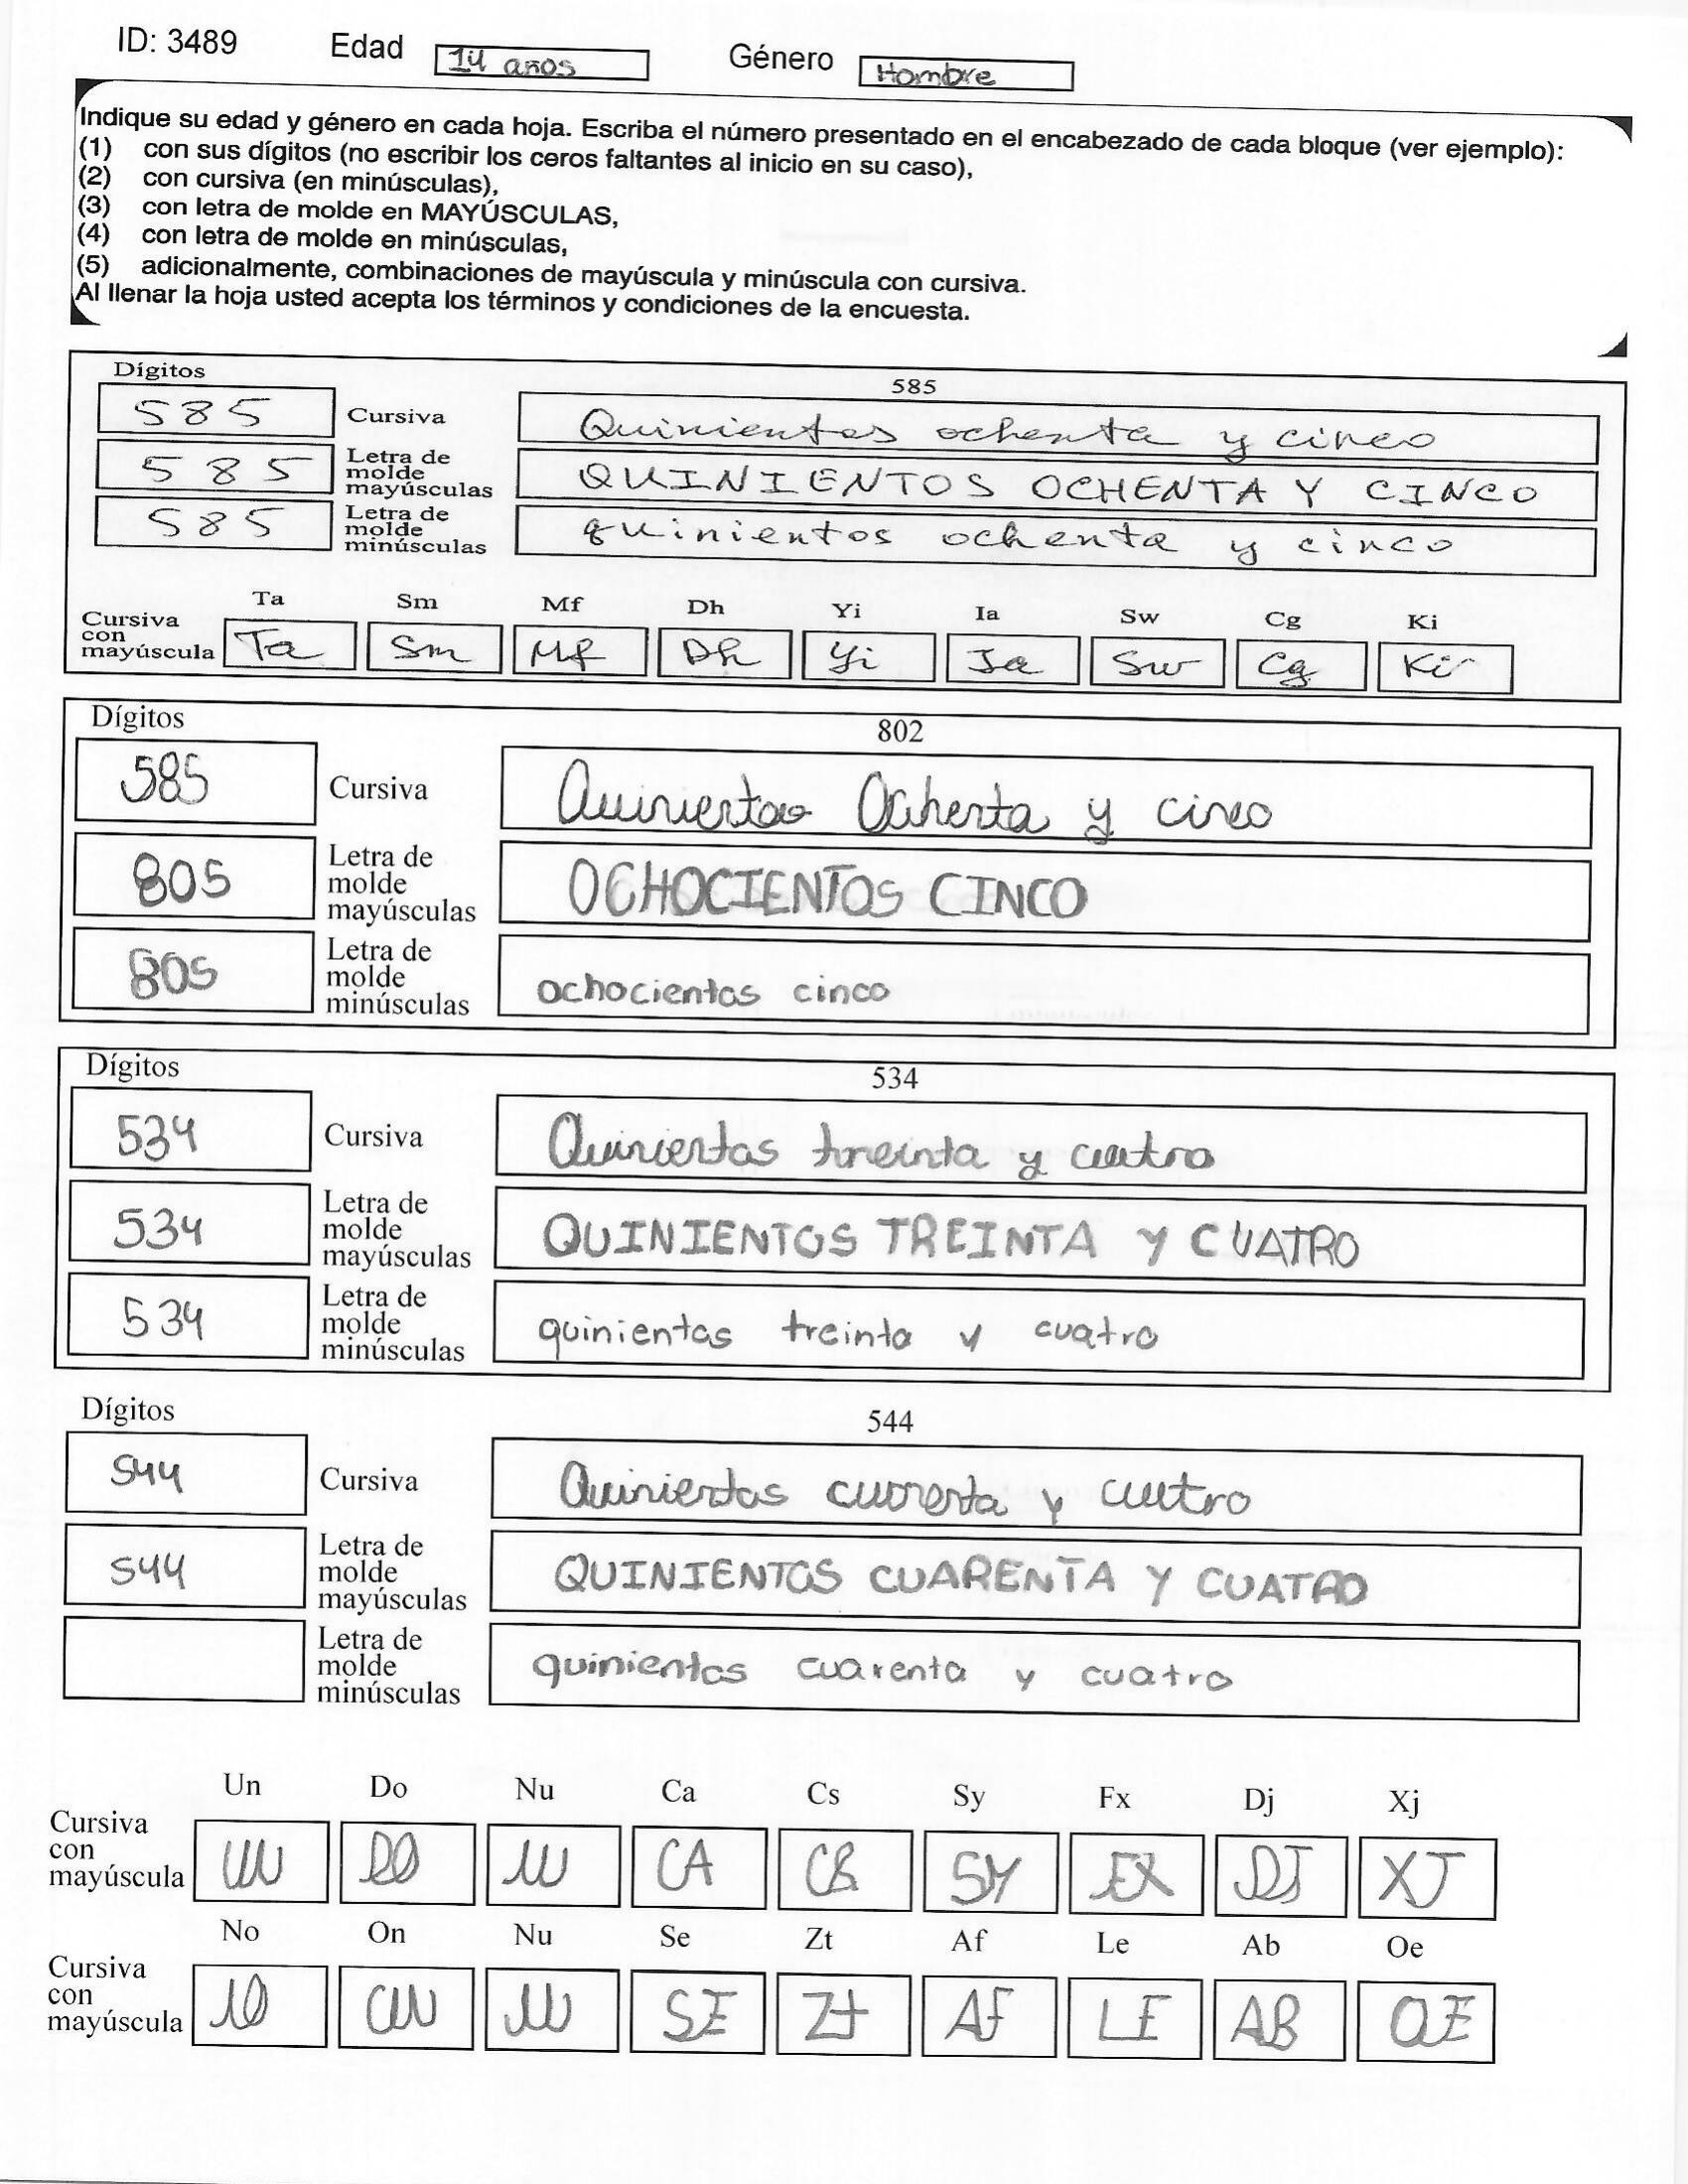 ID: 3489 Edad 14 años Género Hombre
Indique su edad y género en cada hoja. Escriba el número presentado en el encabezado de cada bloque (ver ejemplo):
(1) con sus dígitos (no escribir los ceros faltantes al inicio en su caso),
(2) con cursiva (en minúsculas),
(3) con letra de molde en MAYÚSCULAS,
(4) con letra de molde en minúsculas,
(5) adicionalmente, combinaciones de mayúscula y minúscula con cursiva.
Al llenar la hoja usted acepta los términos y condiciones de la encuesta.
Dígitos 585
585 Cursiva Quinientos ochenta y cinco
585 Letra de molde mayúsculas QUINIENTOS OCHENTA Y CINCO
585 Letra de molde minúsculas quinientos ochenta y cinco
Ta Sm Mf Dh Yi Ia Sw Cg Ki
Cursiva con mayúscula Ta Sm Mf Dh Yi Ia Sw Cg Ki
Dígitos 802
585 Cursiva Quinientos Ochenta y cinco
805 Letra de molde mayúsculas OCHOCIENTOS CINCO
805 Letra de molde minúsculas ochocientos cinco
Dígitos 534
534 Cursiva Quinientos treinta y cuatro
534 Letra de molde mayúsculas QUINIENTOS TREINTA Y CUATRO
534 Letra de molde minúsculas quinientos treinta y cuatro
Dígitos 544
544 Cursiva Quinientos cuarenta y cuatro
544 Letra de molde mayúsculas QUINIENTOS CUARENTA Y CUATRO
Letra de molde minúsculas quinientos cuarenta y cuatro
Un Do Nu Ca Cs Sy Fx Dj Xj
Cursiva con mayúscula UN DO NU CA CS SY FX DJ XJ
No On Nu Se Zt Af Le Ab Oe
Cursiva con mayúscula NO ON NU SE Zt AF LE AB OE